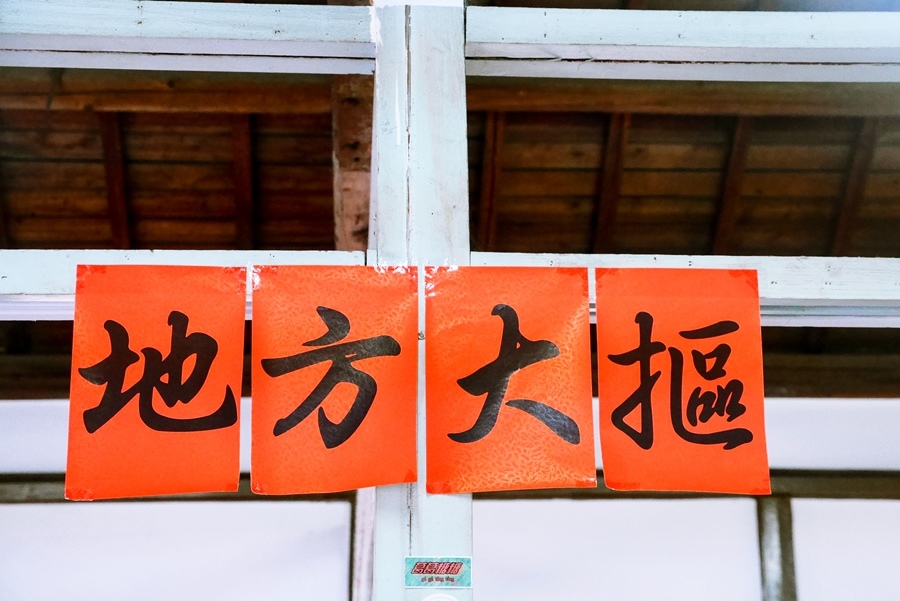 地方大摳